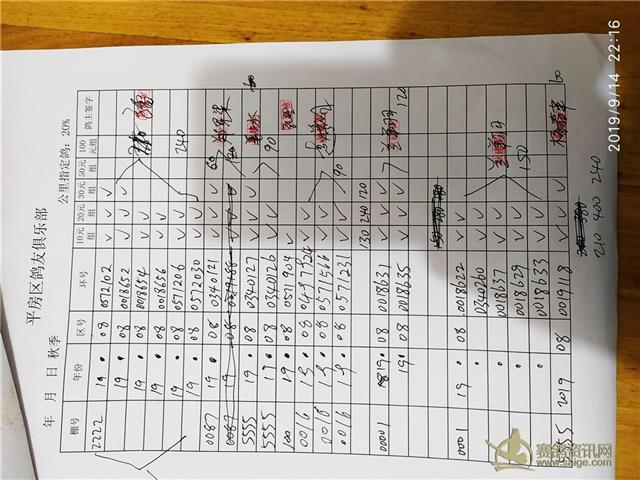 平房区鸽友俱乐部
年 月 日 秋季 公里指定鸽：20%
棚号 年份 区号 环号 10元组 20元组 30元组 50元组 100元组 鸽主签字
2222 19. 08 0572102 ✓ ✓ ✓
19. 08 0018652 ✓ ✓ ✓
19. 08 0018654 ✓ ✓ ✓
19. 08 0018656 ✓ ✓ ✓
19. 08 0571206 ✓ ✓ ✓ 240
19. 08 0572030 ✓ ✓ ✓
0087 19. 08 0340121 ✓ ✓ ✓ 60
5555 19. 08 0340127 ✓ ✓ ✓
5555 19. 08 0340126 ✓ ✓ ✓ 90
19. 08 0511904 ✓ ✓
0016 19. 08
0016 19. 08 0571516 ✓ ✓ ✓
0016 19. 08 0571231 ✓ ✓ ✓ 90
130 240 120
00001 19. 08 0018631 ✓ ✓ ✓
19. 08 0018635 ✓ ✓ ✓ 120
0001 19. 08 0018622 ✓ ✓
0340260 ✓ ✓
0018637 ✓ ✓
0018629 ✓ ✓ 150
0018633 ✓ ✓
5555 2019 08 0019118 ✓ ✓ ✓ 60
210 400 240
2019/9/14 22:16
赛鸽资讯网
www.saige.com